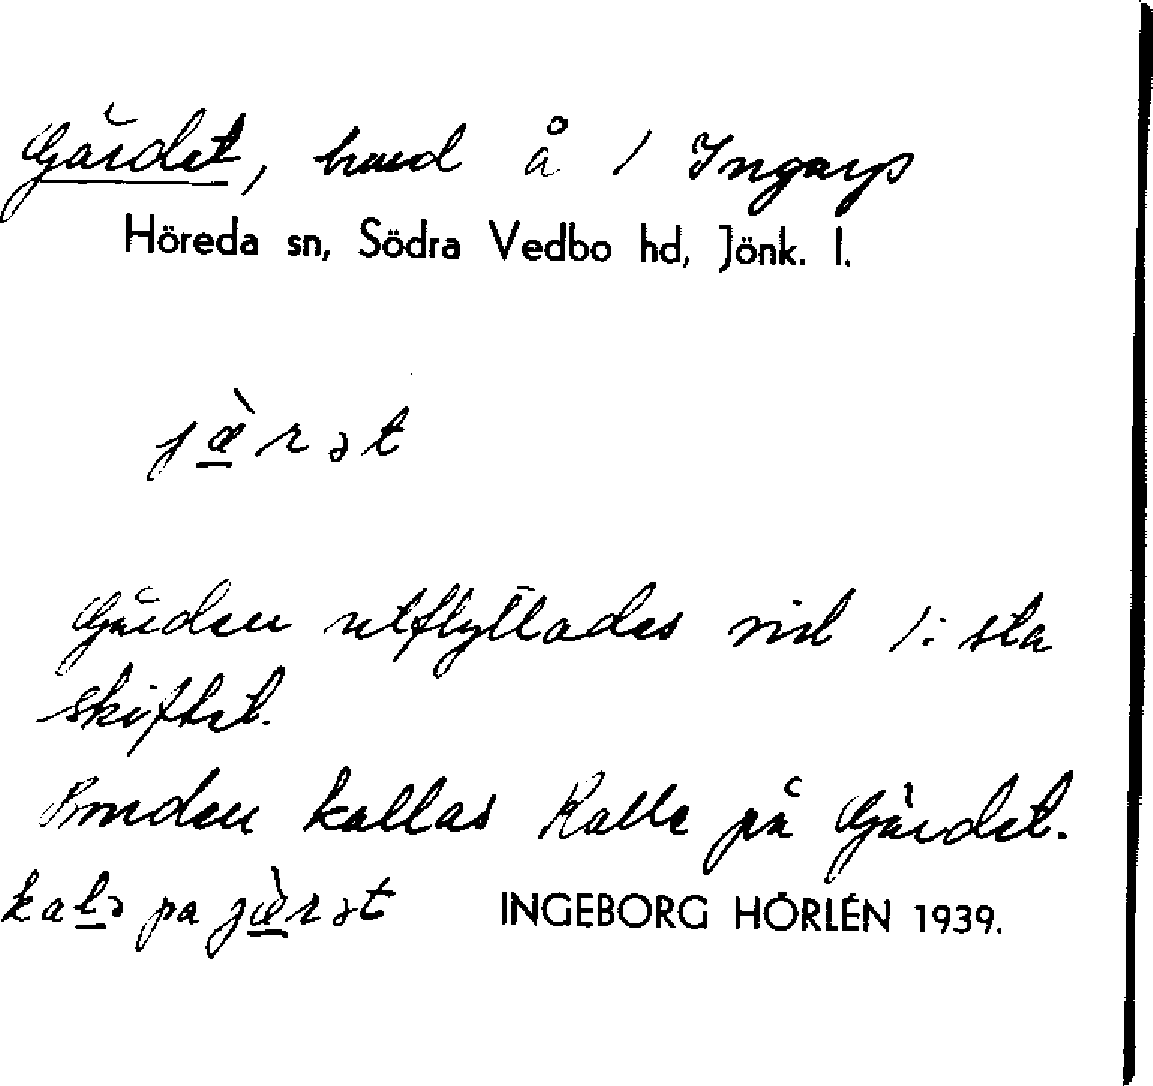 Gärdet, hmd å 1 Ingarp
Höreda sn, Södra Vedbo hd, Jönk. l.
jæ̀rət
Gården utflyttades vid 1:sta
skiftet.
Bonden kallas Kalle på Gärdet.
kalə pa jæ̀rət INGEBORG HÖRLÉN 1939.